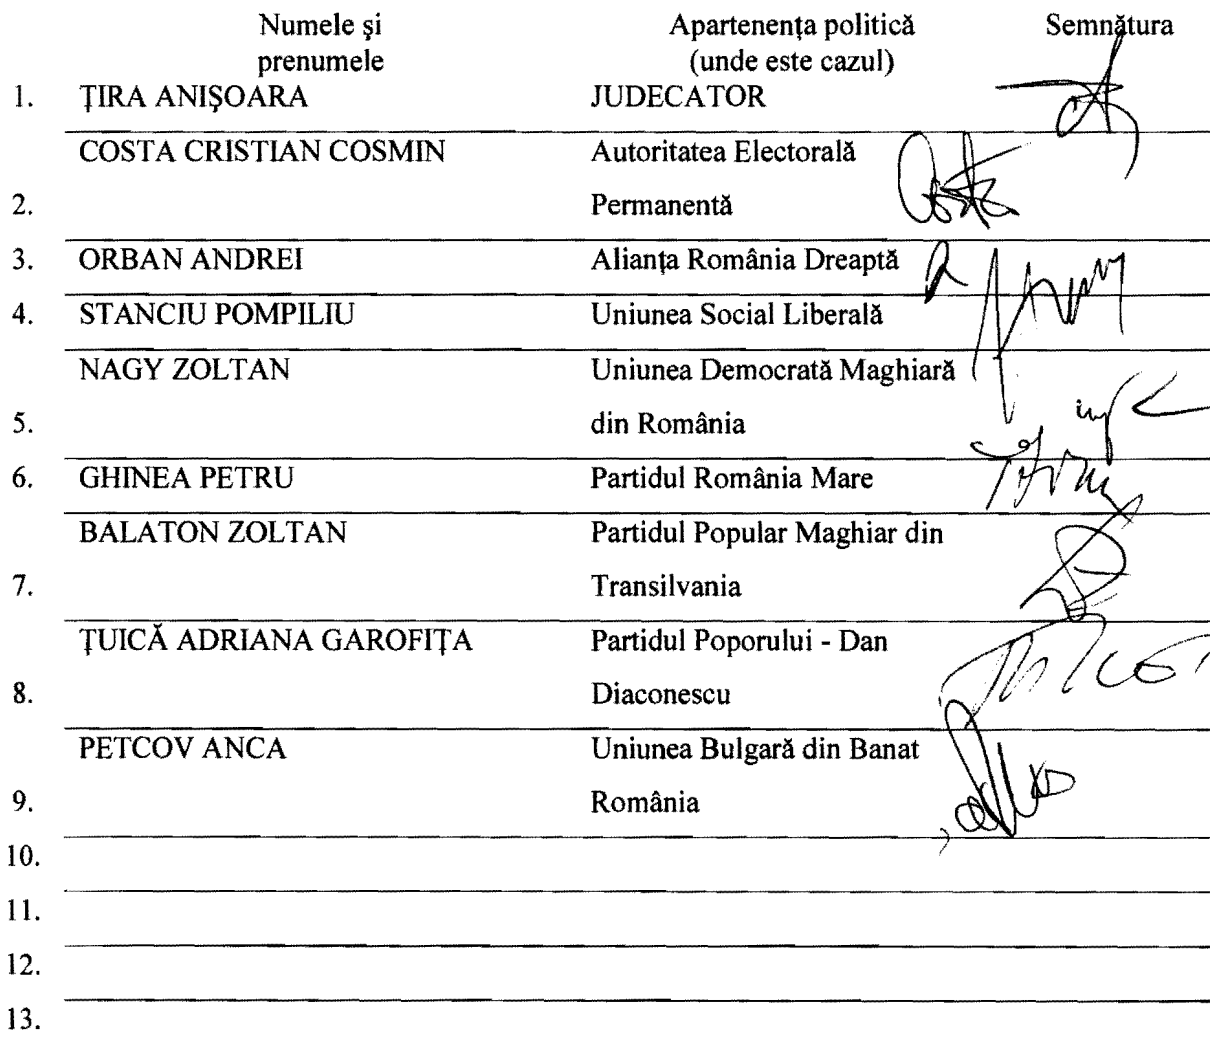 Numele şi Apartenența politică Semnătura
prenumele (unde este cazul)
1. ŢIRA ANIŞOARA JUDECATOR
COSTA CRISTIAN COSMIN Autoritatea Electorală
2. Permanentă
3. ORBAN ANDREI Alianţa România Dreaptă
4. STANCIU POMPILIU Uniunea Social Liberală
NAGY ZOLTAN Uniunea Democrată Maghiară
5. din România
6. GHINEA PETRU Partidul România Mare
BALATON ZOLTAN Partidul Popular Maghiar din
7. Transilvania
ŢUICĂ ADRIANA GAROFIŢA Partidul Poporului - Dan
8. Diaconescu
PETCOV ANCA Uniunea Bulgară din Banat
9. România
10.
11.
12.
13.